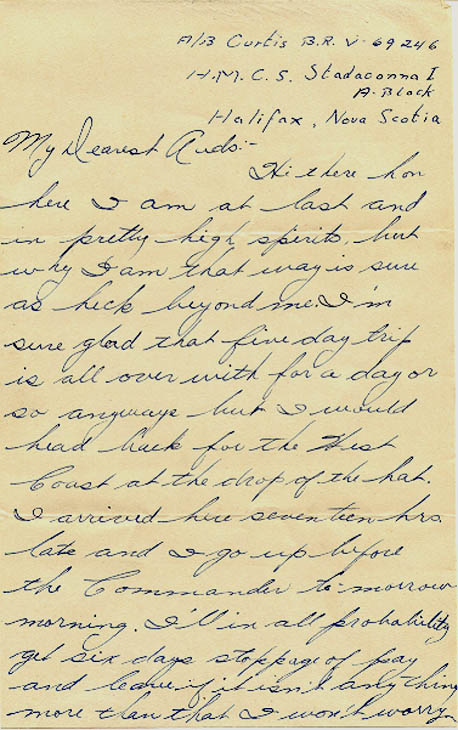 A/B Curtis B.R. V-69246
H.M.C.S. Stadaconna I
A. Block
Halifax, Nova Scotia
My Dearest Auds:-
Hi there hon
here I am at last and
in pretty high spirits, but
why I am that way is sure
as heck beyond me. I'm
sure glad that five day trip
is all over with for a day or
so anyways but I would
head back for the West
Coast at the drop of the hat.
I arrived here seventeen hrs.
late and I go up before
the Commander to-morrow
morning. I'll in all probability
get six days stoppage of pay
and leave if it isn't anything
more than that I won't worry